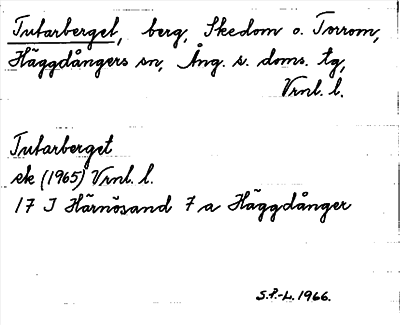 Tutarberget, berg, Skedom o. Torrom,
Häggdångers sn, Ång. s. doms. tg,
Vrnl. l.
Tutarberget
ek (1965) Vrnl. l.
17 J Härnösand 7 a Häggdånger
S.P.-L. 1966.